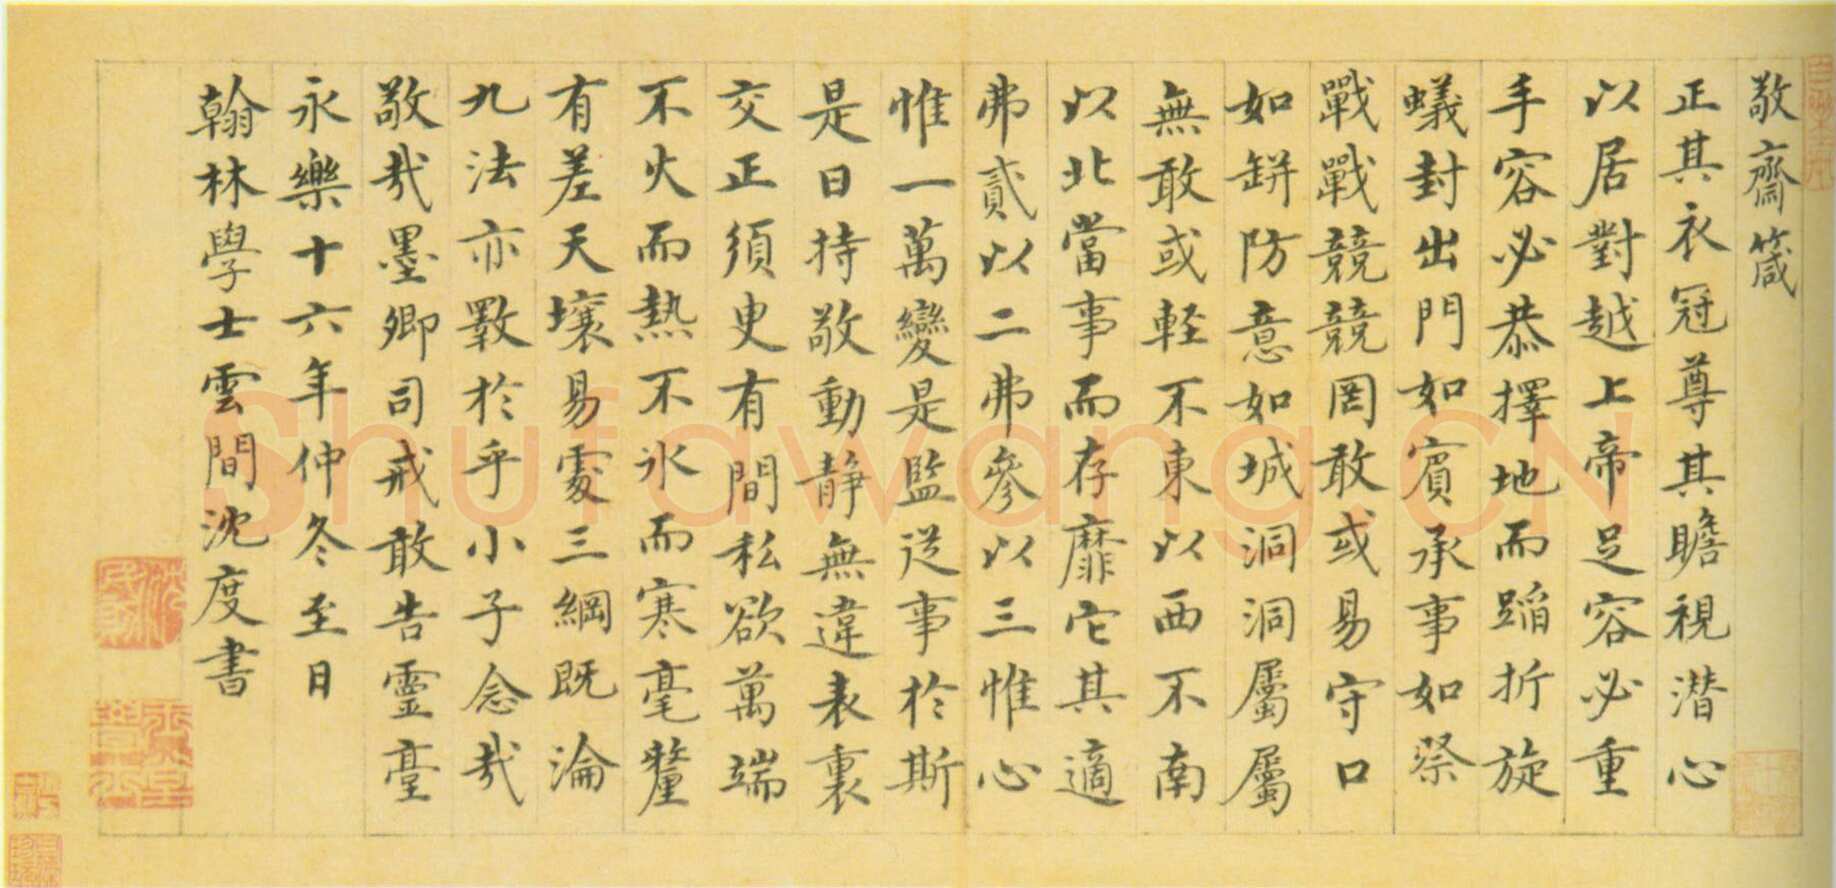 敬齋箴
正其衣冠尊其瞻視潜心
以居對越上帝足容必重
手容必恭擇地而蹈折旋
蟻封出門如賓承事如祭
戰戰兢兢罔敢或易守口
如缾防意如城洞洞屬屬
無敢或輕不東以西不南
以北當事而存靡它其適
弗貳以二弗參以三惟心
惟一萬變是監從事於斯
是曰持敬動静無違表裏
交正須臾有間私欲萬端
不火而熱不氷而寒毫釐
有差天壤易處三綱既淪
九法亦斁於乎小子念哉
敬哉墨卿司戒敢告靈臺
永樂十六年仲冬至日
翰林學士雲間沈度書
Shufawang.CN